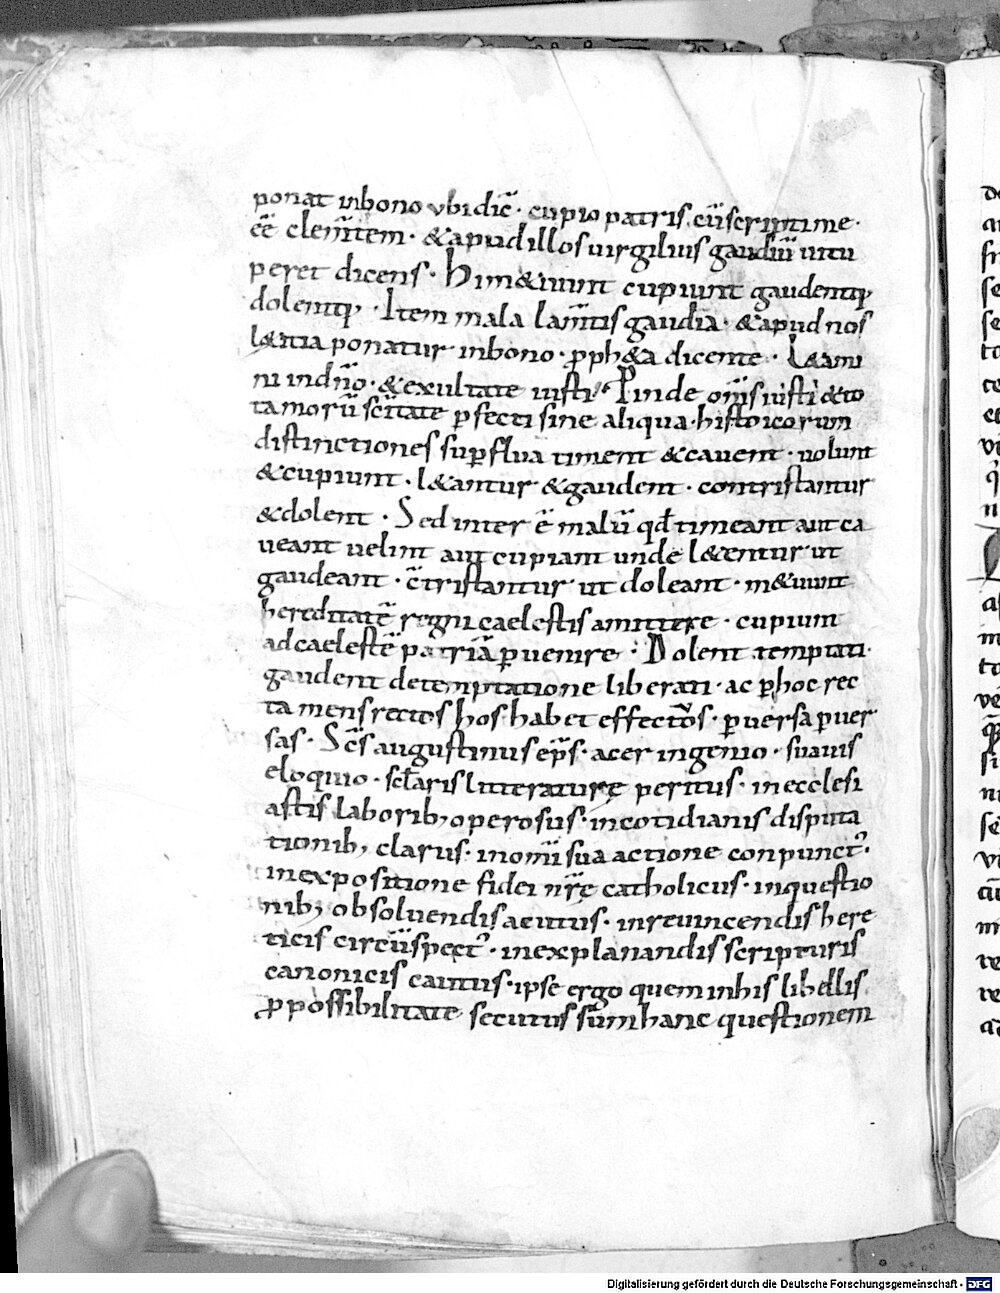 ponat inbono vbidic̄· cupio patris. cū scriptime·
cē clem̄tem· &apud illos uirgilius gaudiū uitu
peret dicens· Him&uunt cupiunt gaudentq;
dolentq;· Item mala lam̄tis gaudia· &apud nos
l&itia ponatur inbono· ꝓph&a dicente· L&ami
ni indn̄o· &exultate iusti· Pinde om̄s iusti &to
ta morū sc̄itate ꝑfecti sine aliqua historicorum
distinctiones suꝑflua timent &cauent· uolunt
&cupiunt· l&antur &gaudent· contristantur
&dolent· Sed inter ē malū qd̄ timeant aut ca
ueant uelint aut cupiant unde l&entur ut
gaudeant· c̄tristantur ut doleant· m&uunt
hereditatē regni caelestis amittere· cupiunt
adcaelestē patriā ꝑuenire· Dolent temptati·
gaudent detemptatione liberati· ac ꝑhoc rec
ta mens rectos hos habet effectos· ꝑuersa ꝑuer
sas· Sc̄s augustinus ep̄s· acer ingenio· suauis
eloquio· sc̄laris litterature peritus· in ecclesi
astis laborib; operosus· incotidianis disputa
tionib; clarus· inomi sua actione conpunct᾿·
inexpositione fidei nr̄ę catholicus· inquestio
nib; obsoluendis acutus· inreuincendis here
ticis circūspect᾿· inexplanandis scripturis
canonicis cautus· ipse ergo quem inhis libellis
ꝓpossibilitate secutus sum hanc questionem
Digitalisierung gefördert durch die Deutsche Forschungsgemeinschaft - DFG